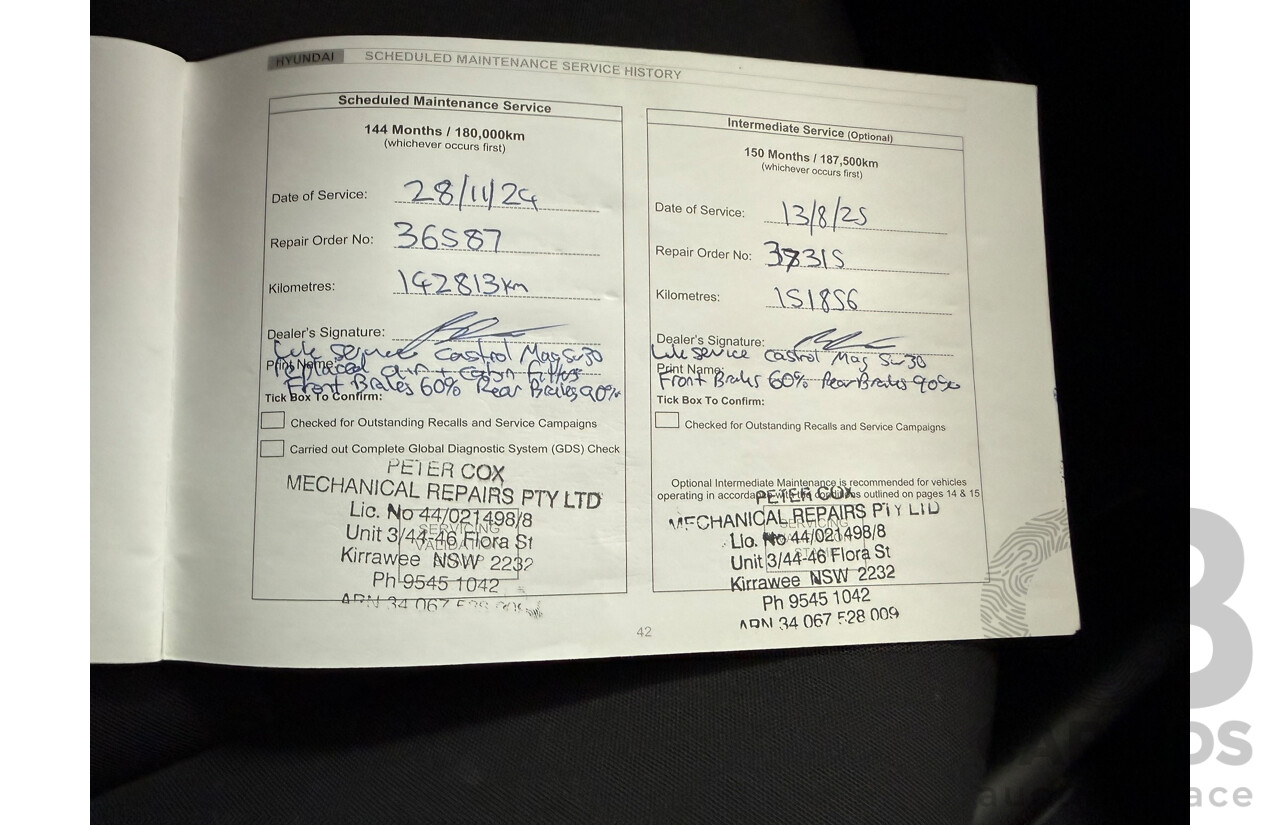 HYUNDAI SCHEDULED MAINTENANCE SERVICE HISTORY
Scheduled Maintenance Service
144 Months / 180,000km
(whichever occurs first)
Date of Service: 28/11/24
Repair Order No: 36587
Kilometres: 142813km
Dealer's Signature:
Lube service Castrol Mag 5w30
Print Name:
Replaced air + Cabin filters
Front Brakes 60% Rear Brakes 90%
Tick Box To Confirm:
Checked for Outstanding Recalls and Service Campaigns
Carried out Complete Global Diagnostic System (GDS) Check
PETER COX
MECHANICAL REPAIRS PTY LTD
Lic. No 44/021498/8
SERVICING
Unit 3/44-46 Flora St
VALIDATION
Kirrawee NSW 2232
Ph 9545 1042
ABN 34 067 528 009
Intermediate Service (Optional)
150 Months / 187,500km
(whichever occurs first)
Date of Service: 13/8/25
Repair Order No: 37315
Kilometres: 151856
Dealer's Signature:
Lube service Castrol Mag 5w30
Print Name:
Front Brakes 60% Rear Brakes 90%
Tick Box To Confirm:
Checked for Outstanding Recalls and Service Campaigns
Optional Intermediate Maintenance is recommended for vehicles
operating in accordance with the conditions outlined on pages 14 & 15
PETER COX
MECHANICAL REPAIRS PTY LTD
SERVICING
Lic. No 44/021498/8
Unit 3/44-46 Flora St
Kirrawee NSW 2232
Ph 9545 1042
ABN 34 067 528 009
42